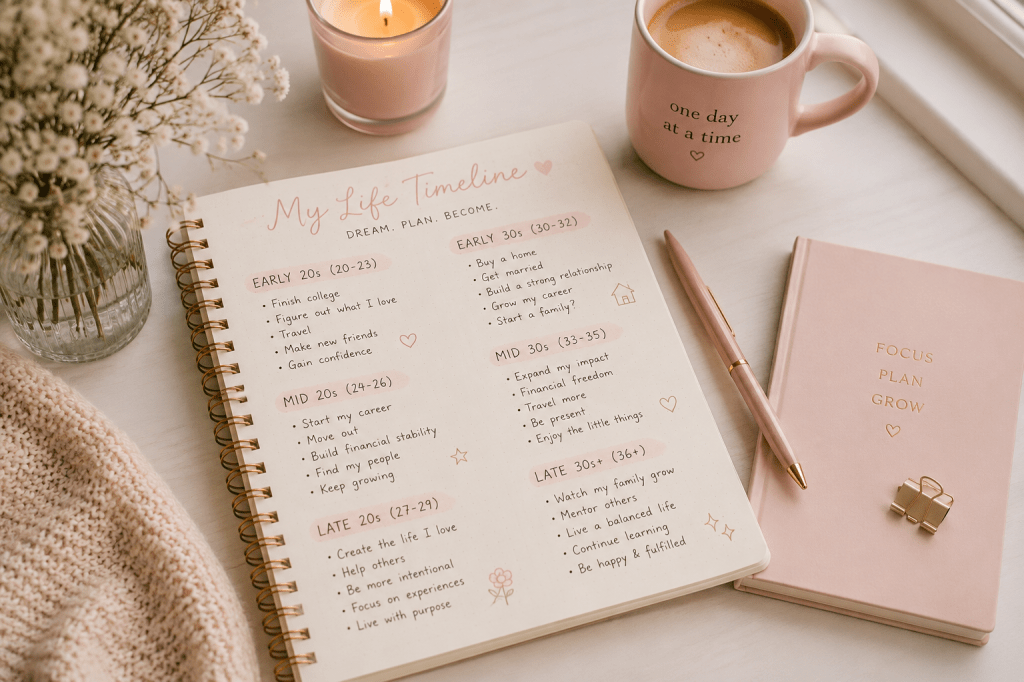 one day
at a time
My Life Timeline
DREAM. PLAN. BECOME.
EARLY 20s (20-23)
• Finish college
• Figure out what I love
• Travel
• Make new friends
• Gain confidence
MID 20s (24-26)
• Start my career
• Move out
• Build financial stability
• Find my people
• Keep growing
LATE 20s (27-29)
• Create the life I love
• Help others
• Be more intentional
• Focus on experiences
• Live with purpose
EARLY 30s (30-32)
• Buy a home
• Get married
• Build a strong relationship
• Grow my career
• Start a family?
MID 30s (33-35)
• Expand my impact
• Financial freedom
• Travel more
• Be present
• Enjoy the little things
LATE 30s+ (36+)
• Watch my family grow
• Mentor others
• Live a balanced life
• Continue learning
• Be happy & fulfilled
FOCUS
PLAN
GROW